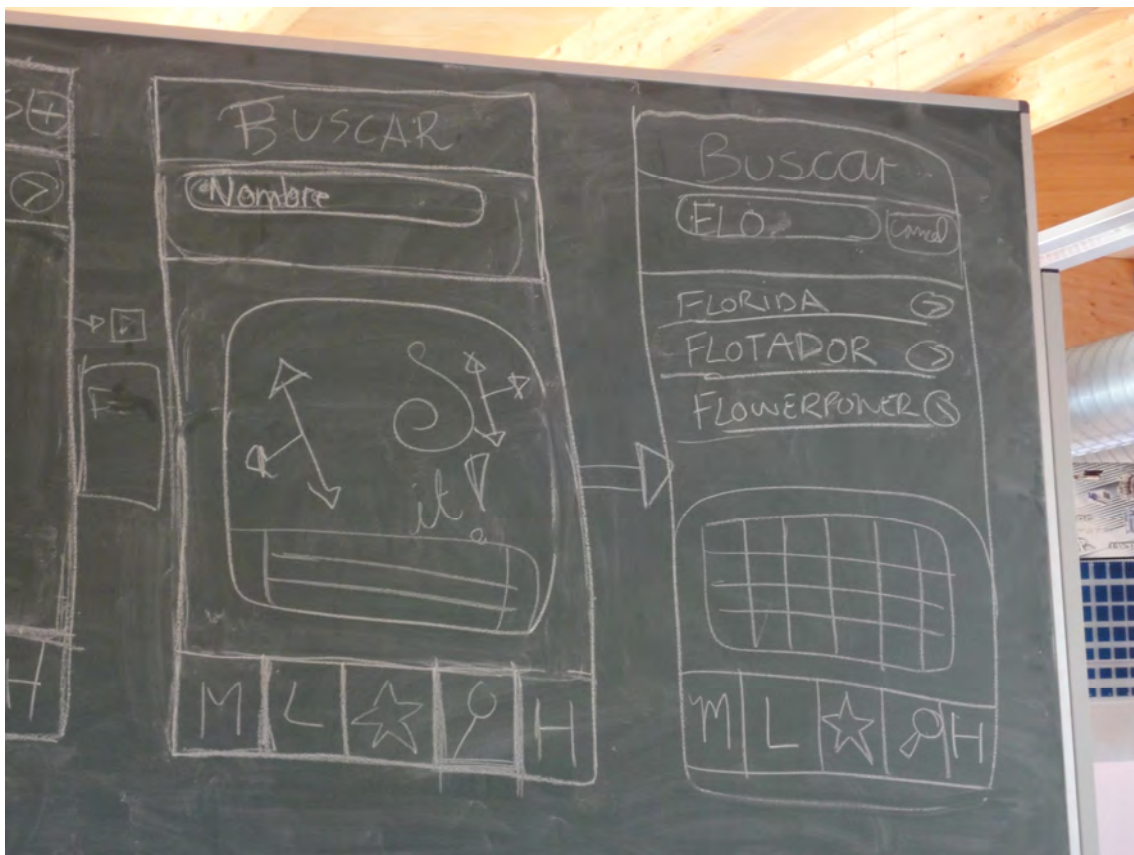 S +
>
F
H
BUSCAR
Nombre
it!
M L H
Buscar
FLO
Cancel
FLORIDA >
FLOTADOR >
FLOWERPOWER
M L H